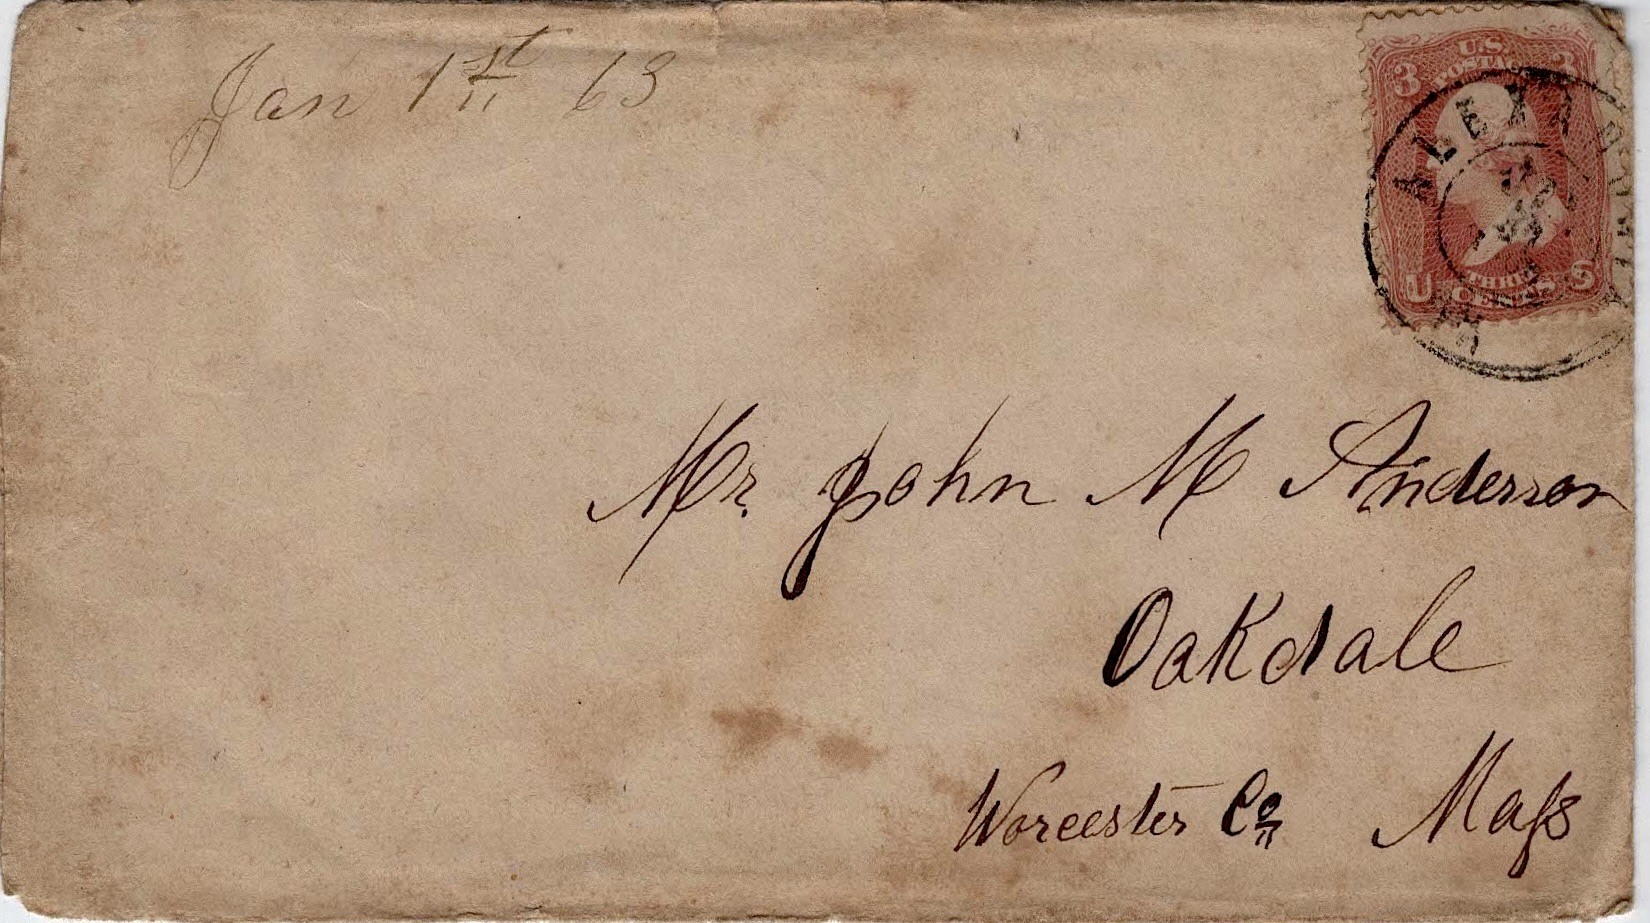 Jan 1st 63
U.S.
POSTAGE
3 3
ALEXANDRIA
VA
THREE
U CENTS S
Mr. John M Anderson
Oakdale
Worcester Co Maſs